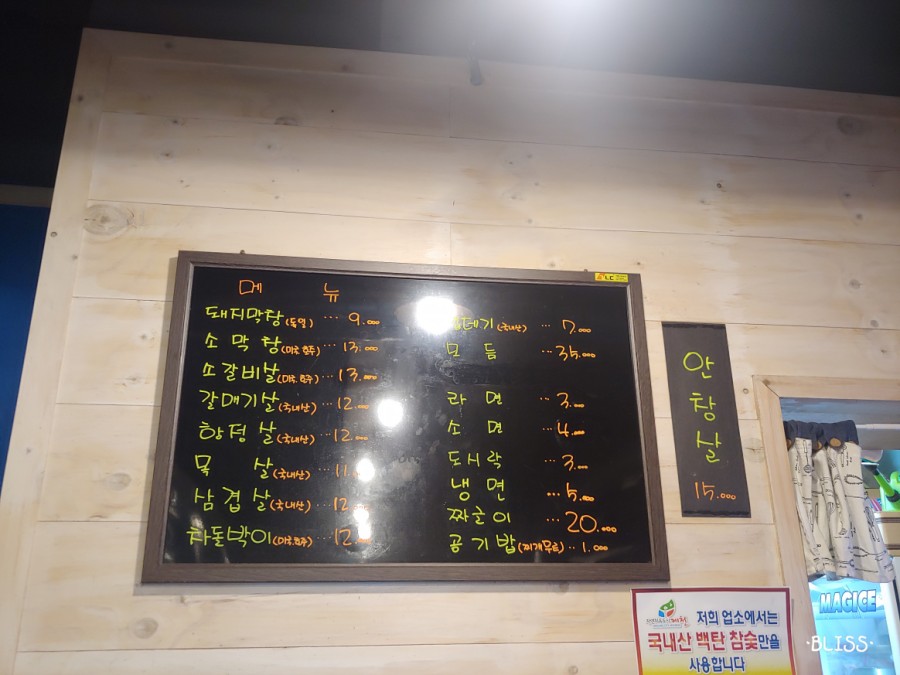 메 뉴
돼지막창(독일) ... 9.000
소막창(미국.호주) ... 13.000
소갈비살(미국.호주) ... 13.000
갈매기살(국내산) ... 12.000
항정살(국내산) ... 12.000
목 살(국내산) ... 11.
삼겹살(국내산) ... 12.
차돌박이(미국.호주) ... 12.
데기(국내산) ... 7.000
모 듬 ... 35.000
라 면 ... 3.000
소 면 ... 4.000
도시락 ... 3.000
냉 면 ... 5.000
짜글이 ... 20.000
공기밥(찌개무료) .. 1.000
LC
안창살
15.000
저희 업소에서는
국내산 백탄 참숯만을
사용합니다
MAGICE
·BLISS·